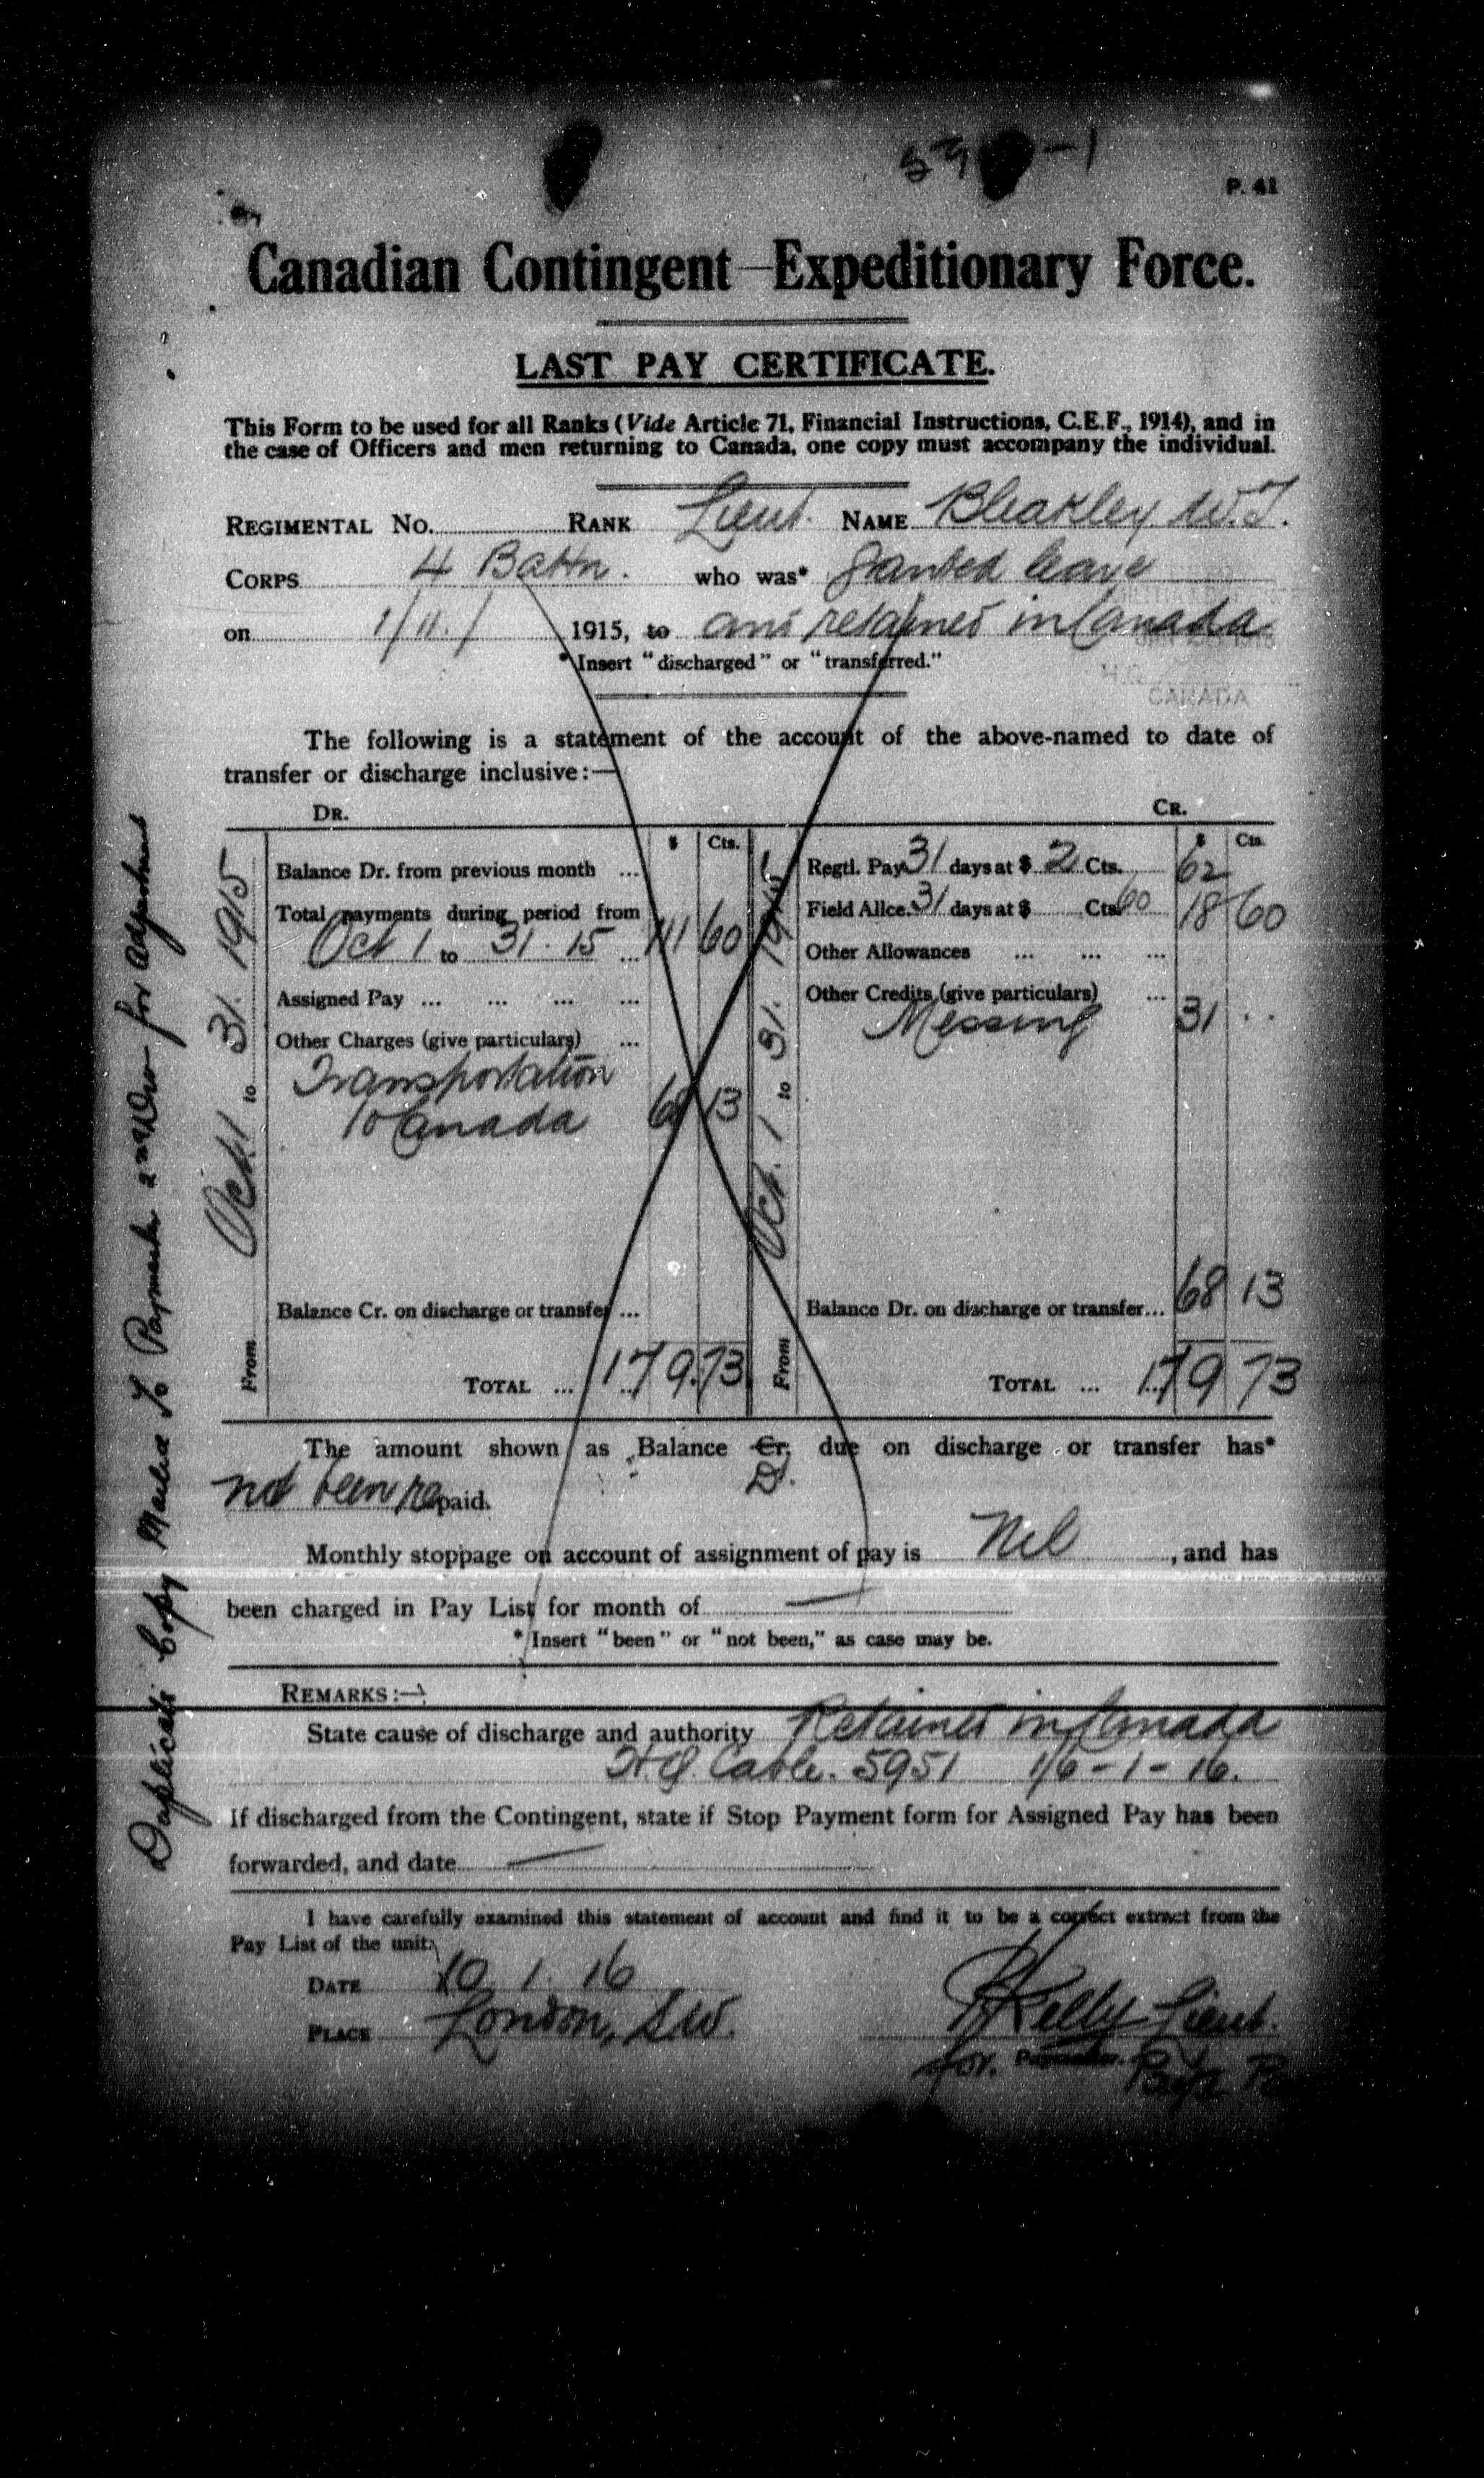 P. 41
Canadian Contingent—Expeditionary Force.
LAST PAY CERTIFICATE.
This Form to be used for all Ranks (Vide Article 71, Financial Instructions, C.E.F., 1914), and in
the case of Officers and men returning to Canada, one copy must accompany the individual.
REGIMENTAL NO. RANK Lieut. NAME Bleakley W.T.
CORPS 4 Battn. who was* granted leave
on 1/11/ 1915, to and retained in Canada
* Insert "discharged" or "transferred."
CANADA
The following is a statement of the account of the above-named to date of
transfer or discharge inclusive:—
DR. CR.
$ Cts. $ Cts.
Balance Dr. from previous month ... Regtl. Pay 31 days at $ 2 Cts. 62
Total payments during period from Field Allce. 31 days at $ Cts. 60 18 60
Oct 1 to 31. 15 ... 111 60 Other Allowances ... ... ...
Assigned Pay ... ... ... ... Other Credits (give particulars) ...
Other Charges (give particulars) ... Messing 31 . .
Transportation
to Canada 68 13
Balance Cr. on discharge or transfer ... Balance Dr. on discharge or transfer... 68 13
TOTAL ... 179.73 TOTAL ... 179 73
From Oct. 1 to 31. 1915
From Oct. 1 to 31. 1915
The amount shown as Balance Cr. due on discharge or transfer has*
Dr.
not been repaid.
Monthly stoppage on account of assignment of pay is Nil, and has
been charged in Pay List for month of —
* Insert "been" or "not been," as case may be.
REMARKS:—
State cause of discharge and authority Retained in Canada
H.Q. Cable. 5951 1/6-1-16.
If discharged from the Contingent, state if Stop Payment form for Assigned Pay has been
forwarded, and date —
I have carefully examined this statement of account and find it to be a correct extract from the
Pay List of the unit.
DATE 10. 1. 16
PLACE London, S.W.
Kelly Lieut.
for. Paymaster.
Duplicate Copy Mailed To Paymaster 2nd Divn for Adjustment